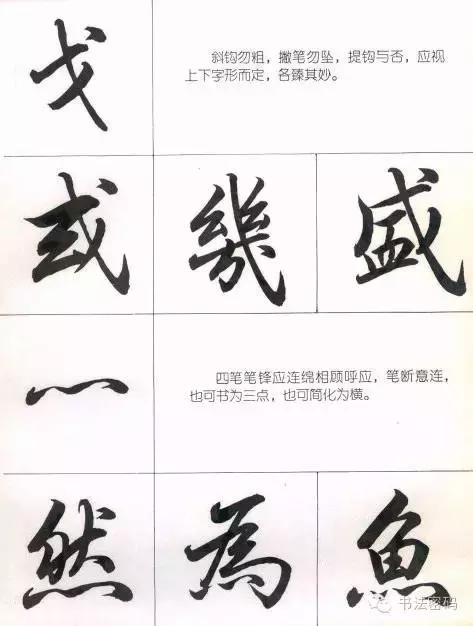 戈
斜钩勿粗，撇笔勿坠，提钩与否，应视
上下字形而定，各臻其妙。
或 幾 盛
灬
四笔笔锋应连绵相顾呼应，笔断意连，
也可书为三点，也可简化为横。
然 為 魚
书法密码